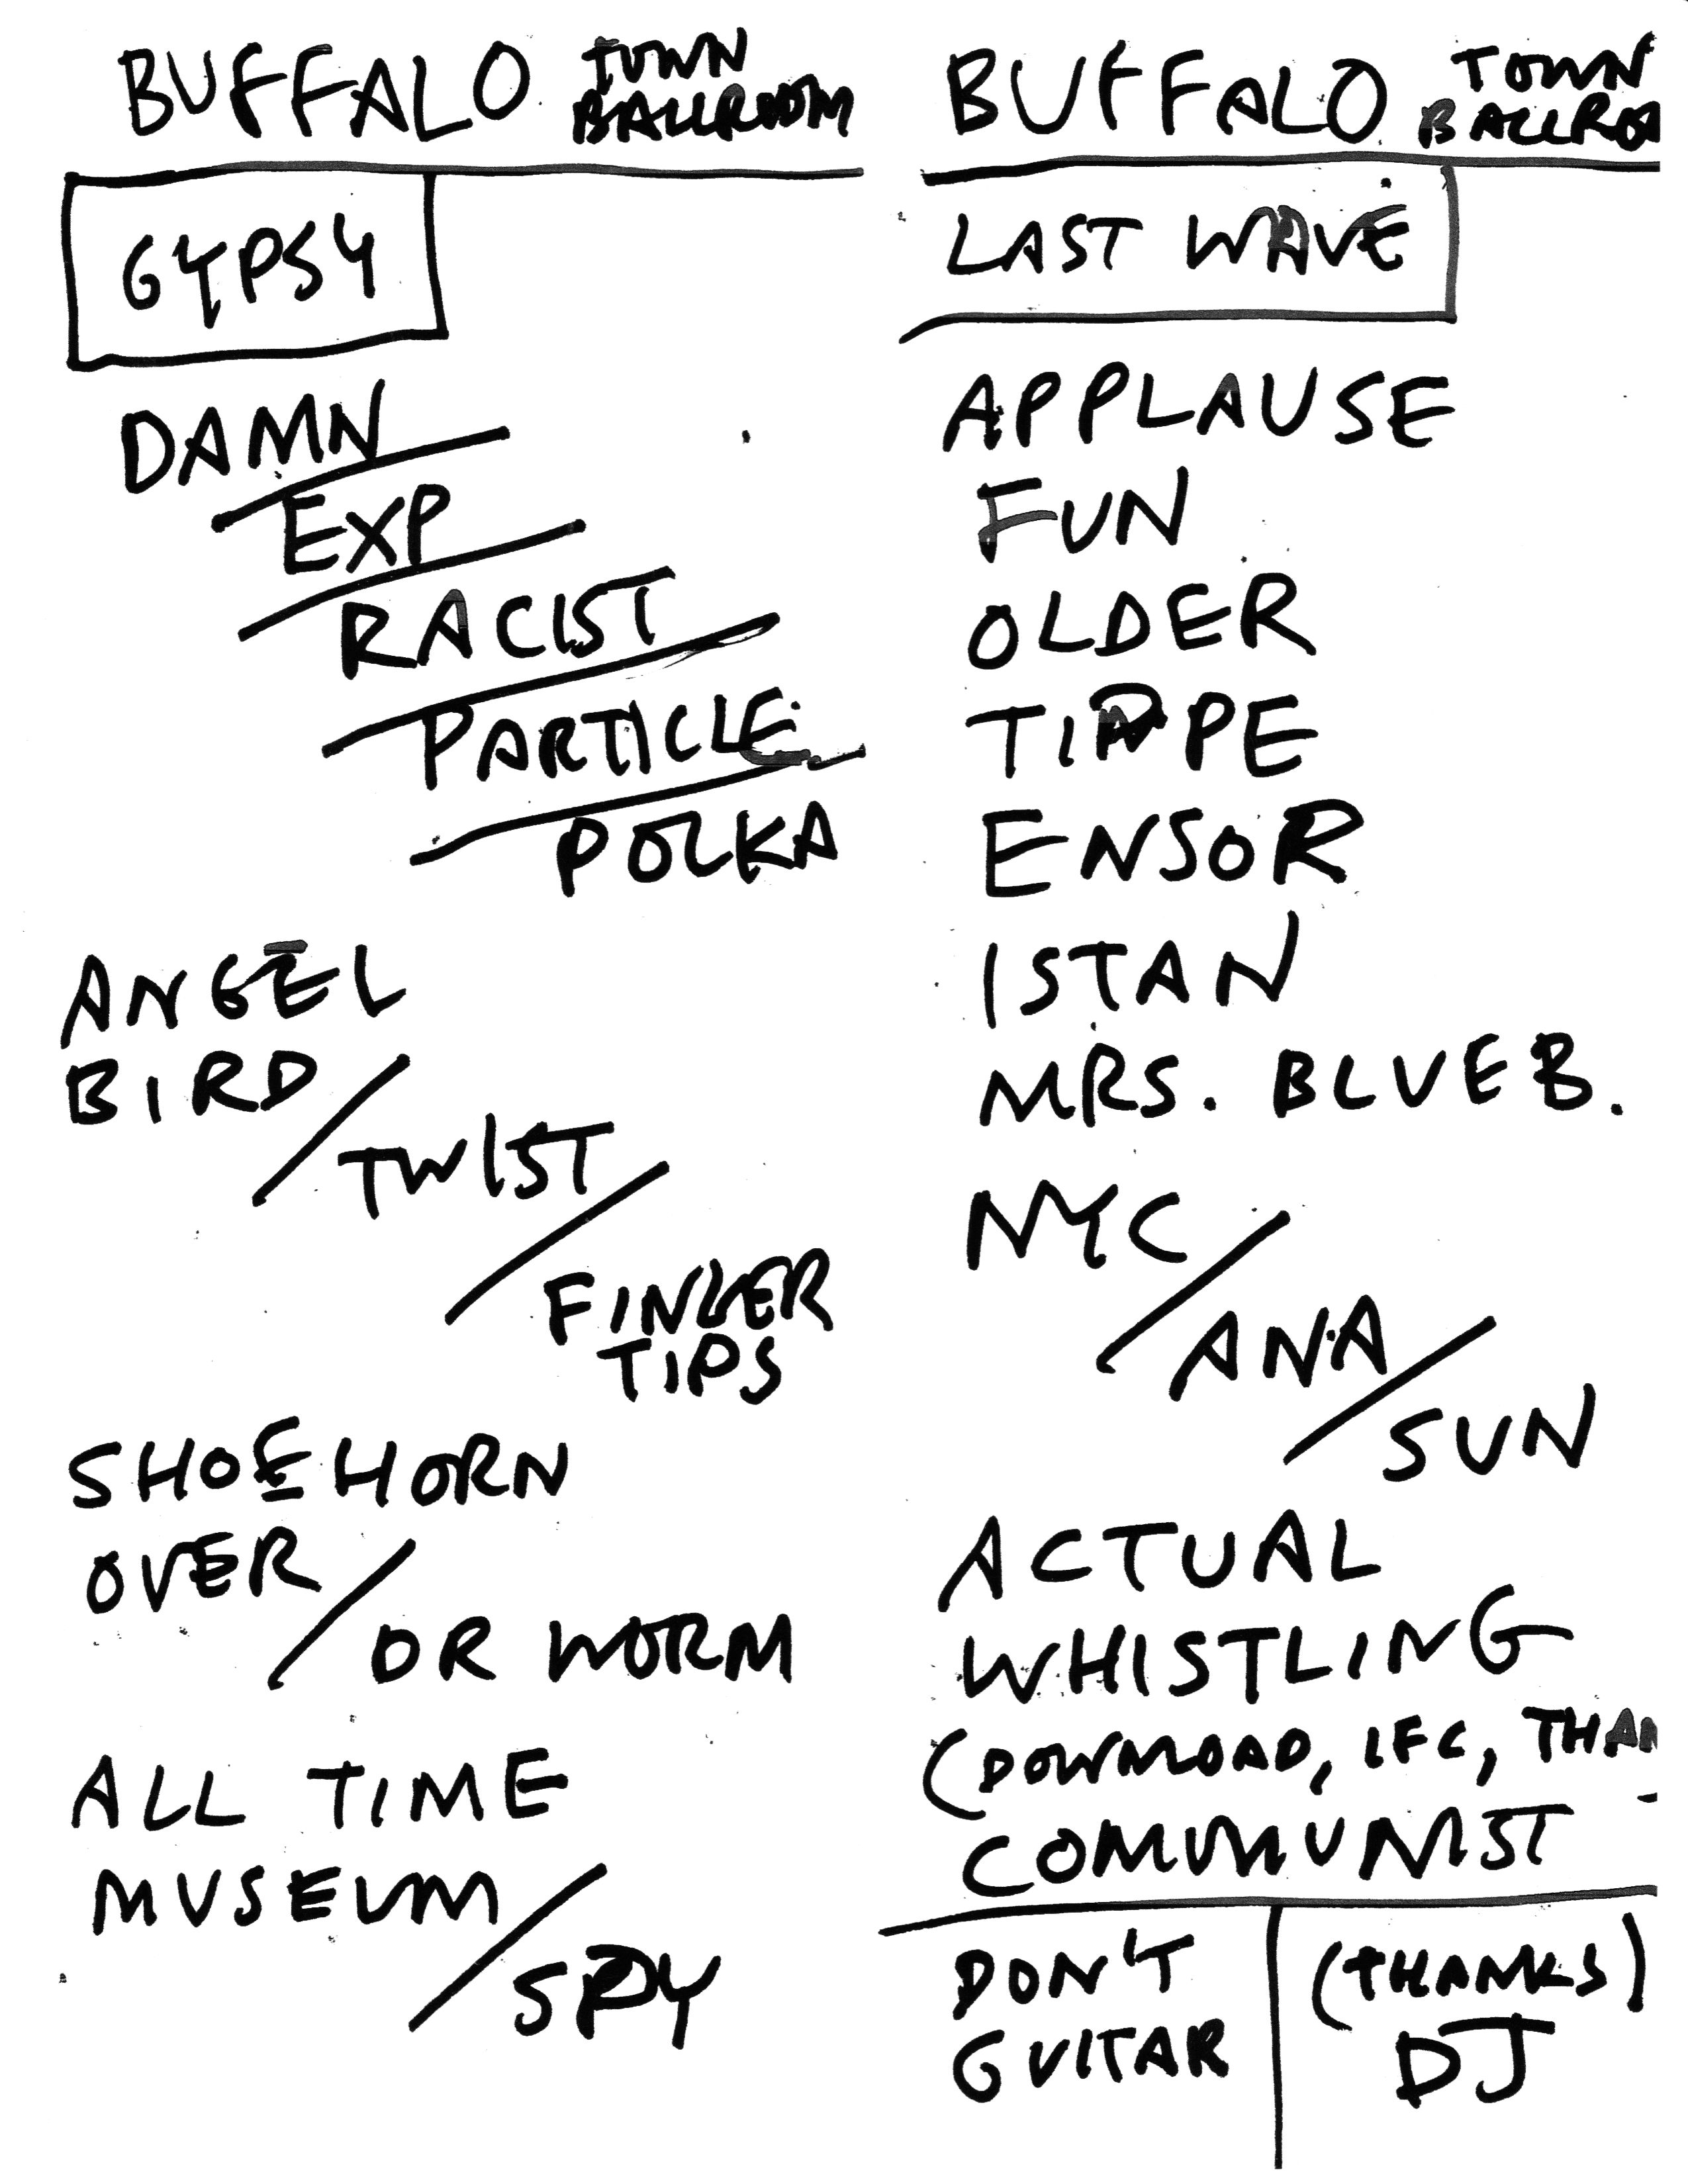 BUFFALO TOWN
BALLROOM
GYPSY
DAMN
EXP
RACIST
PARTICLE
POLKA
ANGEL
BIRD
TWIST
FINGER
TIPS
SHOEHORN
OVER
OR WORM
ALL TIME
MUSEUM
SPY
BUFFALO TOWN
BALLROO
LAST WAVE
APPLAUSE
FUN
OLDER
TIPPE
ENSOR
ISTAN
MRS. BLUE B.
NYC
ANA
SUN
ACTUAL
WHISTLING
(DOWNLOAD, IFC, THAN
COMMUNIST
DON'T
GUITAR
(THANKS)
DJ